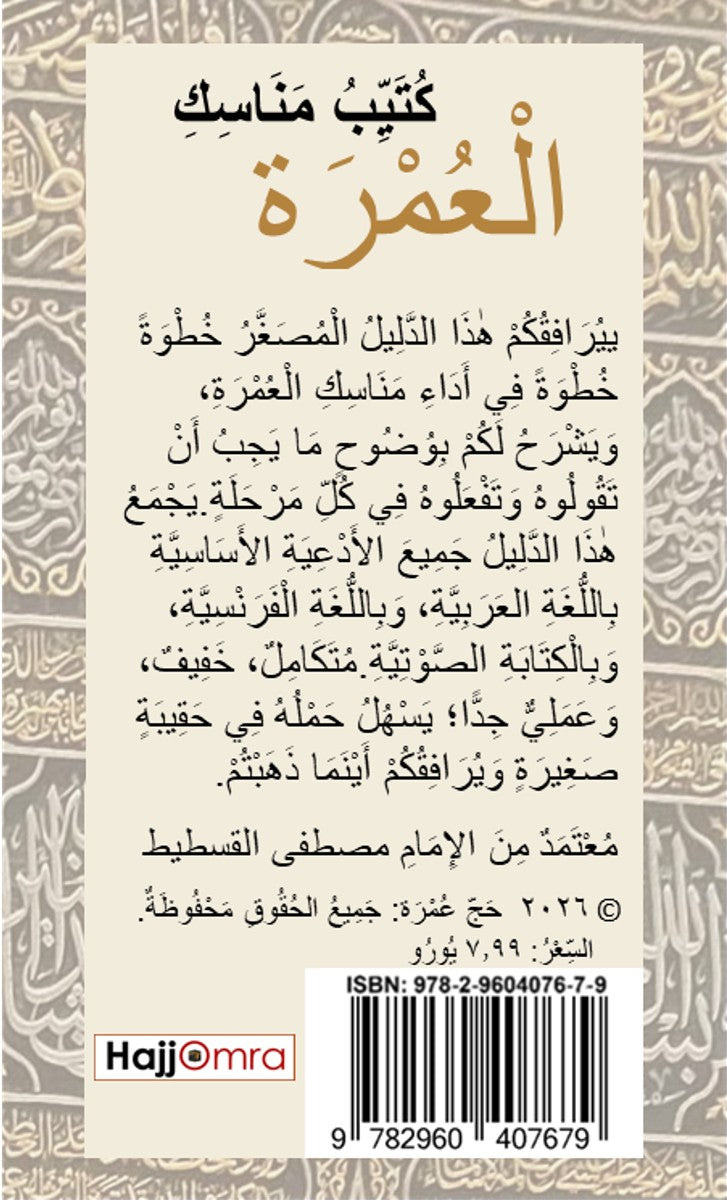 كُتَيِّبُ مَنَاسِكِ
الْعُمْرَة
ييُرَافِقُكُمْ هٰذَا الدَّلِيلُ الْمُصَغَّرُ خُطْوَةً
خُطْوَةً فِي أَدَاءِ مَنَاسِكِ الْعُمْرَةِ،
وَيَشْرَحُ لَكُمْ بِوُضُوحٍ مَا يَجِبُ أَنْ
تَقُولُوهُ وَتَفْعَلُوهُ فِي كُلِّ مَرْحَلَةٍ.يَجْمَعُ
هٰذَا الدَّلِيلُ جَمِيعَ الأَدْعِيَةِ الأَسَاسِيَّةِ
بِاللُّغَةِ العَرَبِيَّةِ، وَبِاللُّغَةِ الْفَرَنْسِيَّةِ،
وَبِالْكِتَابَةِ الصَّوْتِيَّةِ.مُتَكَامِلٌ، خَفِيفٌ،
وَعَمَلِيٌّ جِدًّا؛ يَسْهُلُ حَمْلُهُ فِي حَقِيبَةٍ
صَغِيرَةٍ وَيُرَافِقُكُمْ أَيْنَمَا ذَهَبْتُمْ.
مُعْتَمَدٌ مِنَ الإِمَامِ مصطفى القسطيط
© ٢٠٢٦ حَجّ عُمْرَة: جَمِيعُ الحُقُوقِ مَحْفُوظَةٌ.
السِّعْرُ: ٧,٩٩ يُورُو
ISBN: 978-2-9604076-7-9
HajjOmra
9 782960 407679